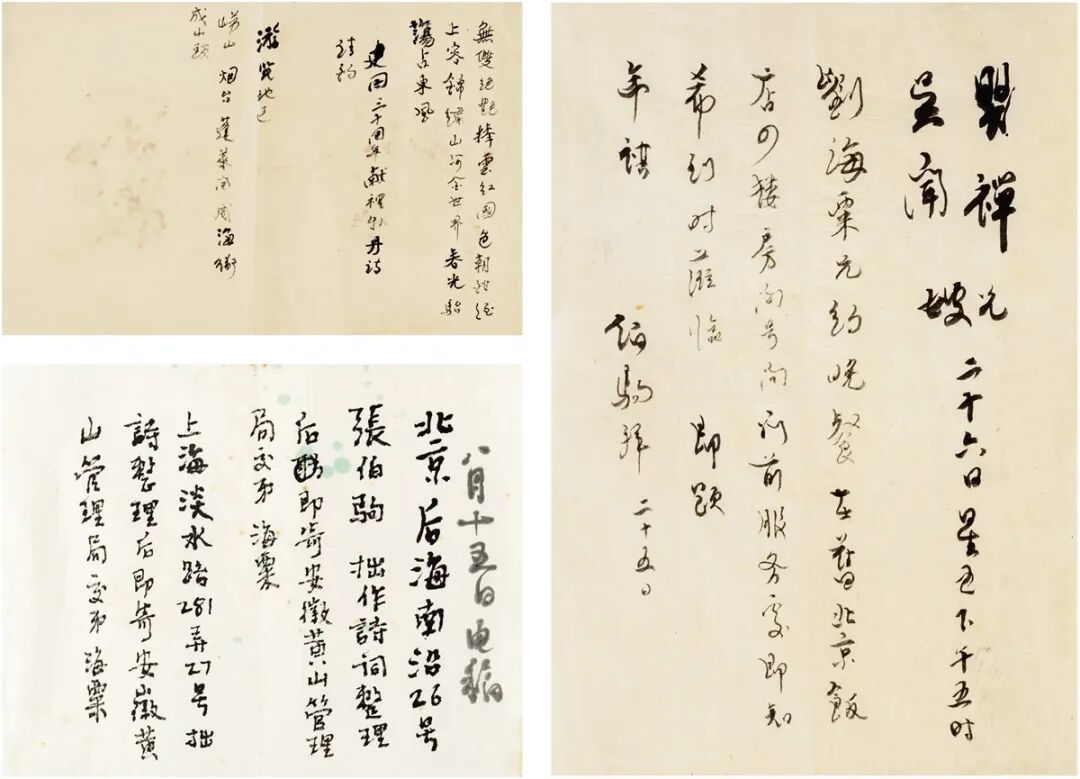 無雙絕艷捧雲紅國色朝酣
上容錦繡山河全世界春光駘
蕩占東風
建国三十周年献禮牡丹詩
游览地
嶗山 烟台 蓬萊阁 威海衛
成山頭
八月十五日电稿
北京后海南沿26号
張伯駒 拙作詩詞整理
后 即寄安徽黄山管理
局交弟 海粟
上海淡水路281弄27号 拙
詩整理后即寄安徽黄
山管理局交弟海粟
瞿禅兄
吴闻嫂 二十六日星五下午五时
劉海粟兄約晚餐在舊北京飯
店 楼房间号问 前服务處即知
希到时莅临 即颂
年祺 伯駒拜 二十五日